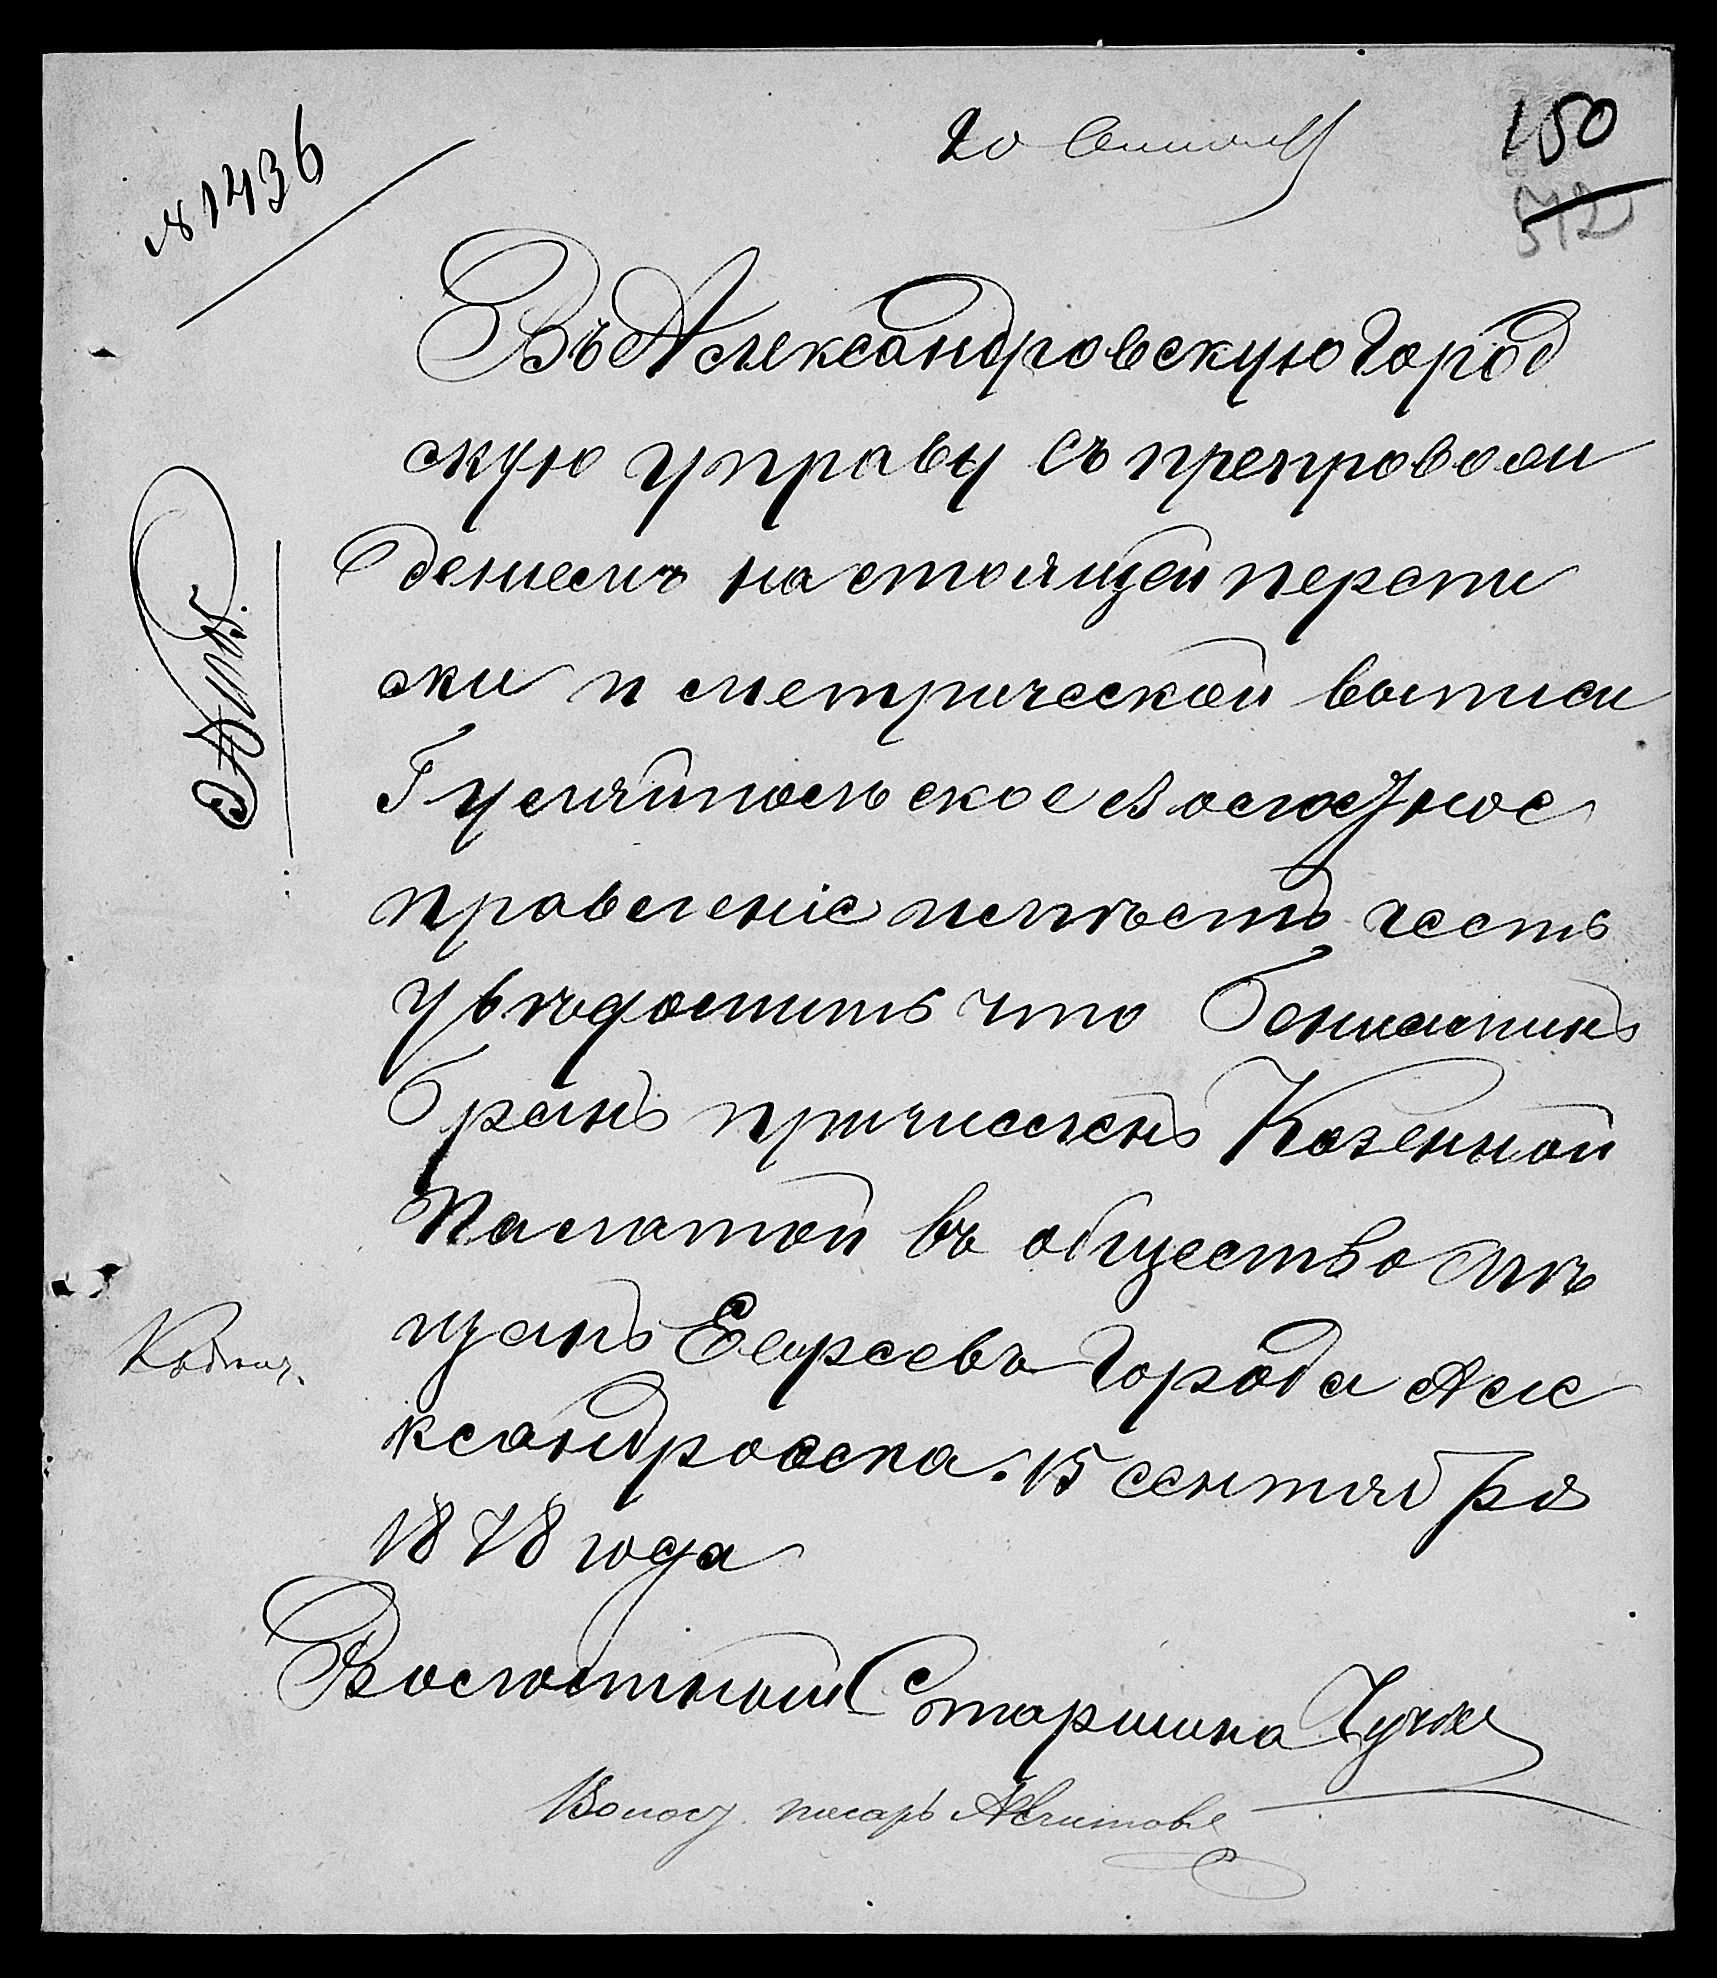 № 1436
20 Сентяб
150
512
Въ Александровскую Город
скую управу съ препровож
деніемъ настоящей перепи
ски и метрической выписи
Гуляйпольское Волостное
правленіе имѣетъ честь
увѣдомить что Беніаминъ
Бранъ причисленъ Казенной
Палатой въ общество мѣ
щанъ Евреевъ города Але
ксандровска. 15 сентября
1878 года
Волостной Старшина
Волост. писарь